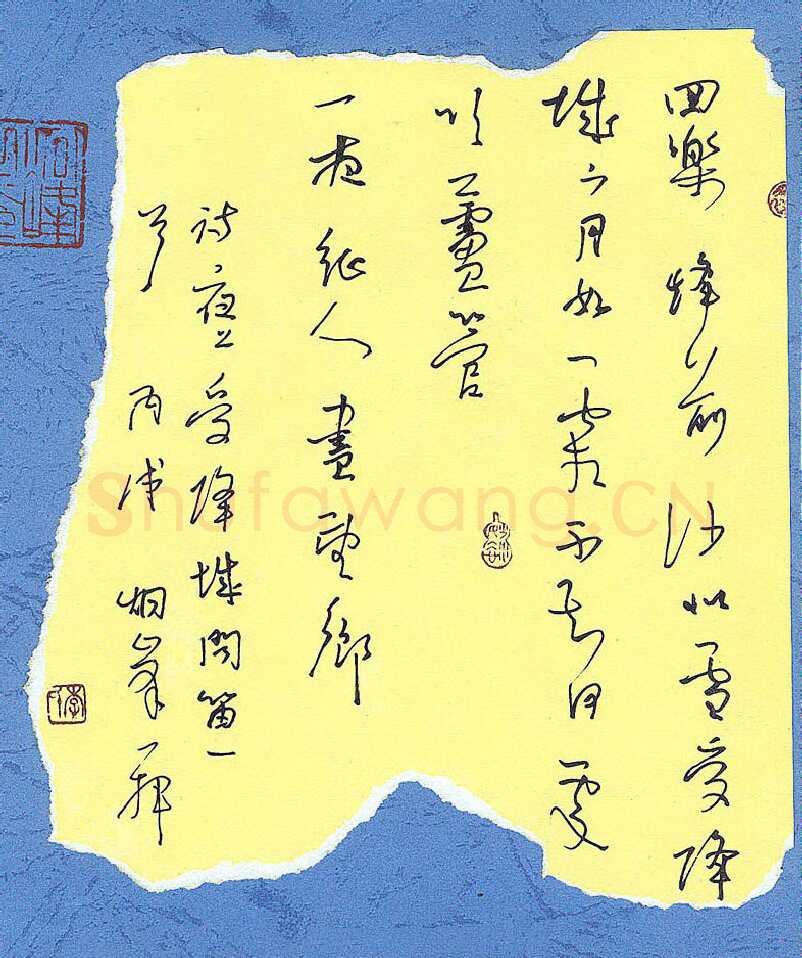 回樂烽前沙似雪受降
城下月如霜不知何處
吹蘆管
一夜征人盡望鄉
詩夜上受降城聞笛一
首 丙戌 炯峯拜
Shufawang.CN